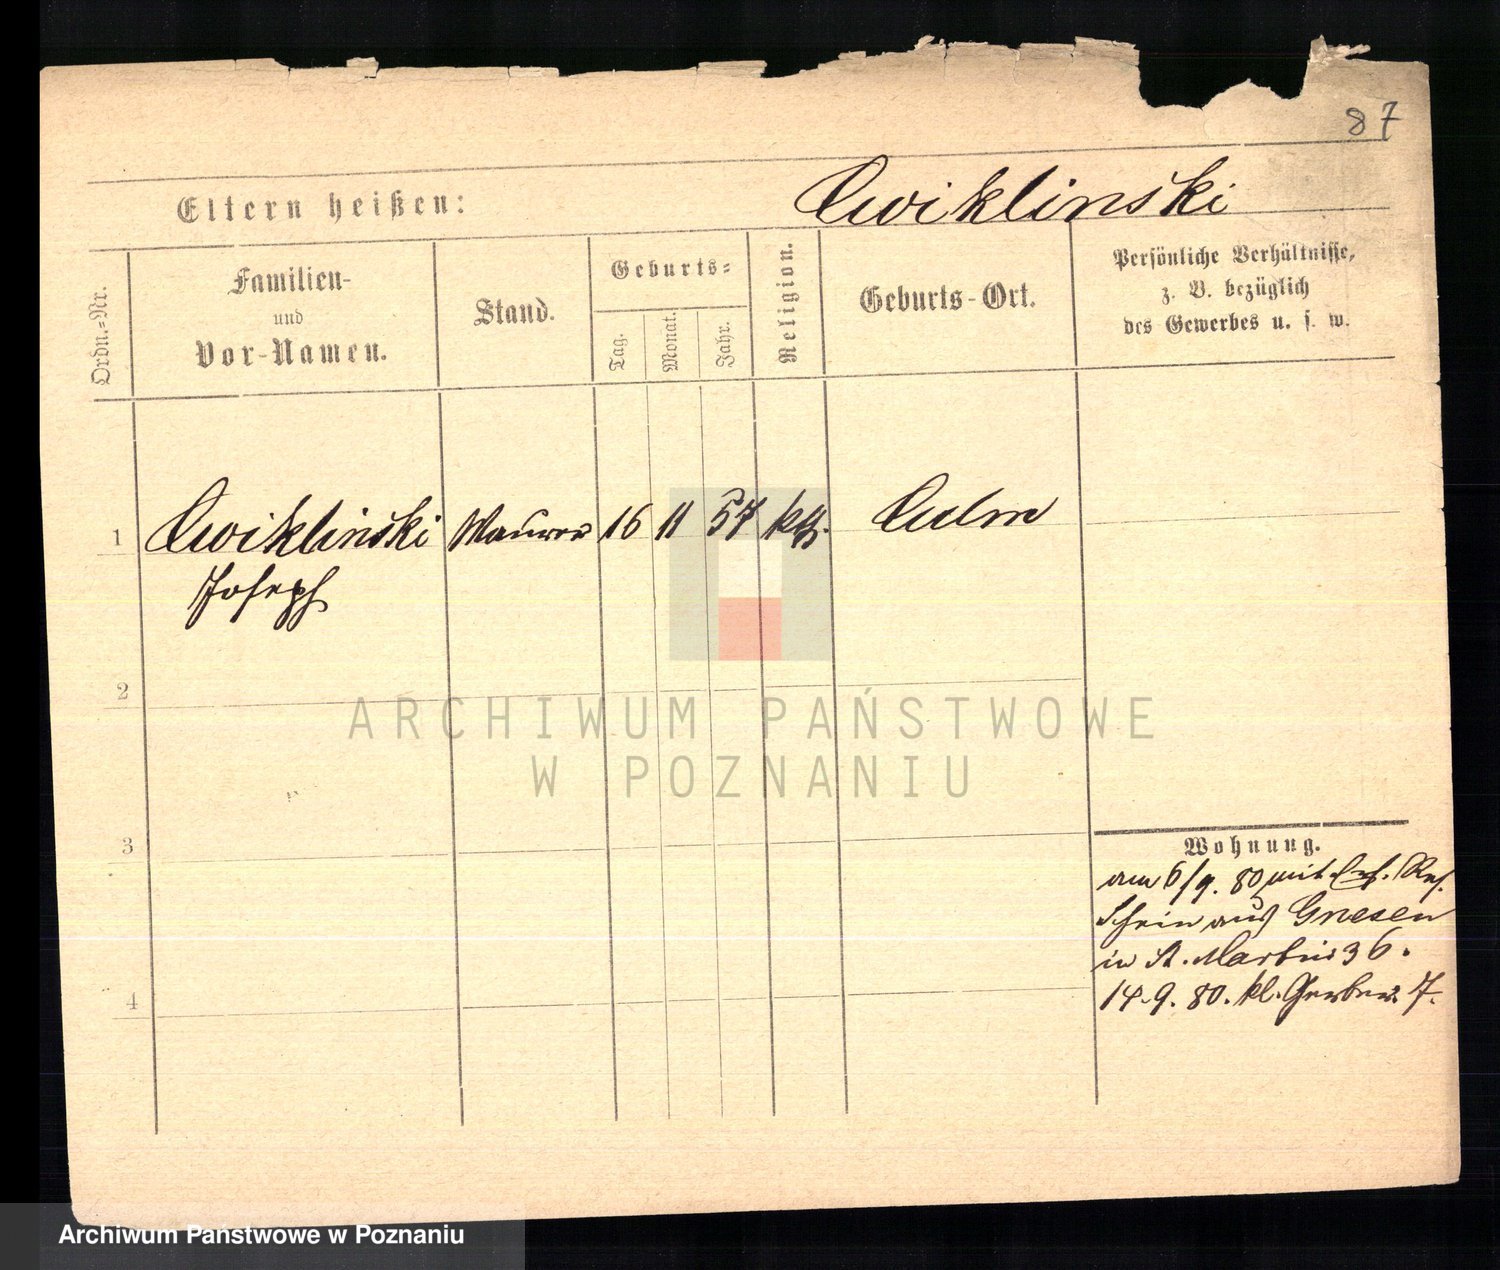 87
Eltern heißen:
Cwiklinski
Ordn.-Nr.
Familien-
und
Vor-Namen.
Stand.
Geburts-
Tag.
Monat.
Jahr.
Religion.
Geburts-Ort.
Persönliche Verhältnisse,
z. B. bezüglich
des Gewerbes u. s. w.
1 Cwiklinski Maurer 16 11 57 kth. Culm
Joseph
2
3
4
Wohnung.
am 6/9. 80 mit
Schein aus Gnesen
in St. Martin 36.
14.9. 80. kl. Gerberstr. 7.
ARCHIWUM PAŃSTWOWE
W POZNANIU
Archiwum Państwowe w Poznaniu